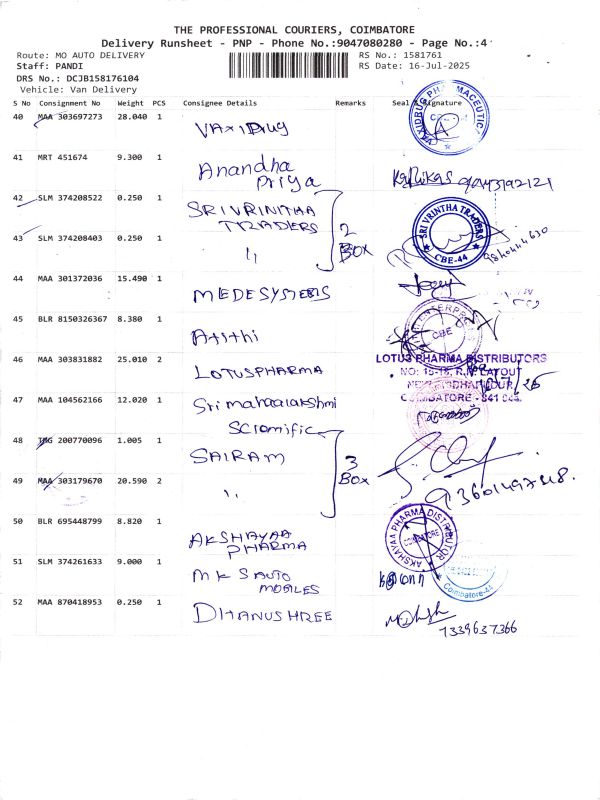 THE PROFESSIONAL COURIERS, COIMBATORE
Delivery Runsheet - PNP - Phone No.:9047080280 - Page No.:4
Route: MO AUTO DELIVERY RS No.: 1581761
Staff: PANDI RS Date: 16-Jul-2025
DRS No.: DCJB158176104
Vehicle: Van Delivery
S No Consignment No Weight PCS Consignee Details Remarks Seal & Signature
40 MAA 303697273 28.040 1 VAXIDRUG
VAXIDRUG PHARMACEUTIC
CBE
41 MRT 451674 9.300 1 Anandha
Priya
Karthikas 9043192121
42 SLM 374208522 0.250 1 SRIVRINTHA
TRADERS
2
BOX
SRI VRINTHA TRADERS
CBE-44
43 SLM 374208403 0.250 1 "
44 MAA 301372036 15.490 1 MEDESYSTEMS
45 BLR 8150326367 8.380 1 Atithi
ENTERPRISES
CBE
46 MAA 303831882 25.010 2 LOTUSPHARMA
LOTUS PHARMA DISTRIBUTORS
NO: 15-18, R.V. LAYOUT
COIMBATORE - 641
47 MAA 104562166 12.020 1 Sri mahaalakshmi
Scientific
48 200770096 1.005 1 SAIRAM
3
BOX
49 MAA 303179670 20.590 2 "
50 BLR 695448799 8.820 1 AKSHAYAA
PHARMA
AKSHAYAA PHARMA DISTRIBUTOR
COIMBATORE
51 SLM 374261633 9.000 1 MKS AUTO
MOBILES
Coimbatore-44
52 MAA 870418953 0.250 1 DHANUSHREE
1339637366